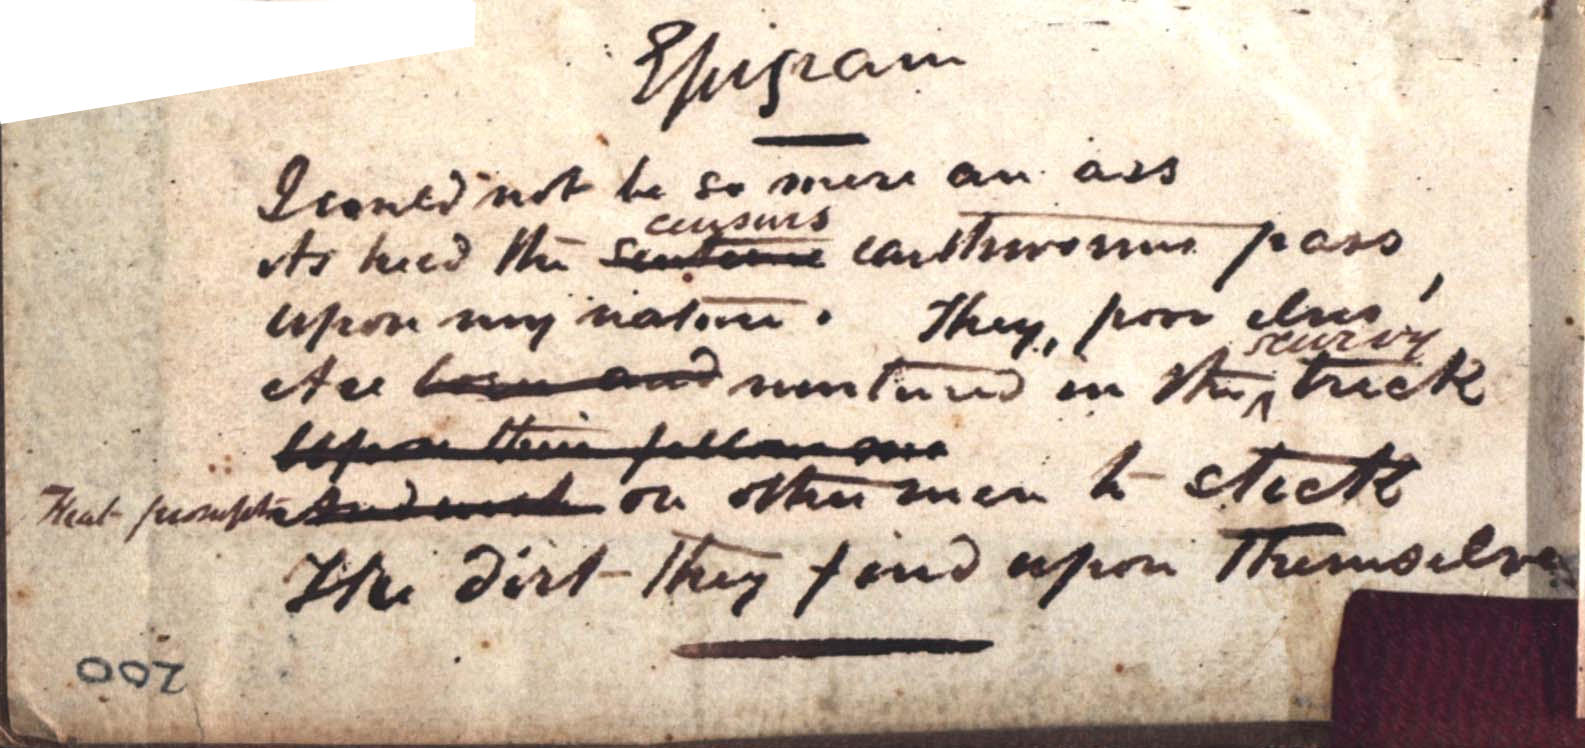 Epigram
I could not be so mere an ass
censure
As heed the sentence earthworms pass
upon my nature. They, poor elves,
scurvy
Are born and nurtured in the trick
Upon their fellow men
That prompts And wish on other men to stick
The dirt they find upon themselves
200